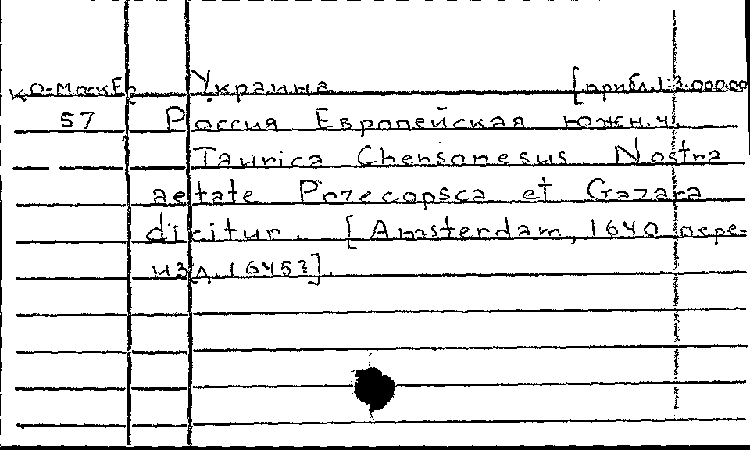 Украина [прибл. 1:3.000.000
57 Россия Европейская южн. ч.
Taurica Chersonesus Nostra
aetate Przecopsca et Gazara
dicitur. [Amsterdam, 1640 пере-
изд. 1645?].